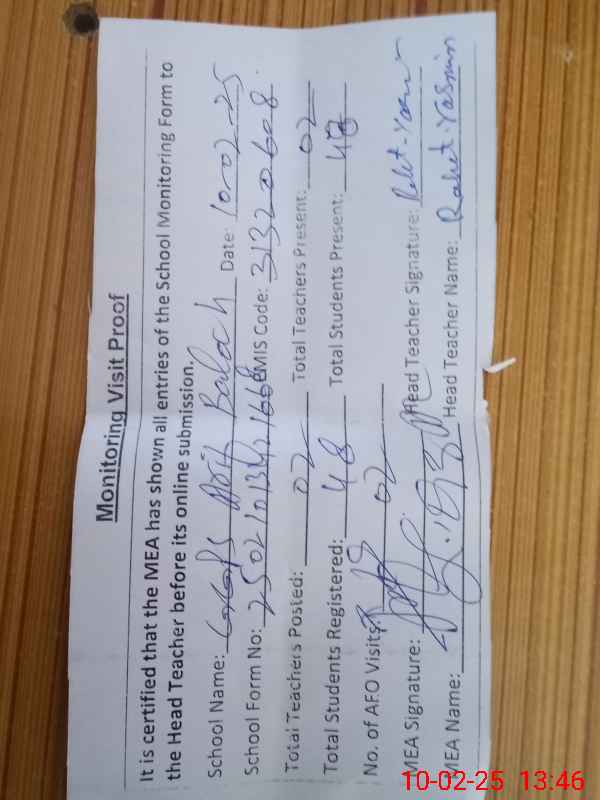 Monitoring Visit Proof
It is certified that the MEA has shown all entries of the School Monitoring Form to
the Head Teacher before its online submission.
School Name: Baloch Date: 10-02-25
School Form No: EMIS Code: 31320608
Total Teachers Posted: 02 Total Teachers Present: 02
Total Students Registered: 48 Total Students Present: 48
No. of AEO Visits: 02
MEA Signature: Head Teacher Signature:
MEA Name: Head Teacher Name: Rahet Yasmin
10-02-25 13:46